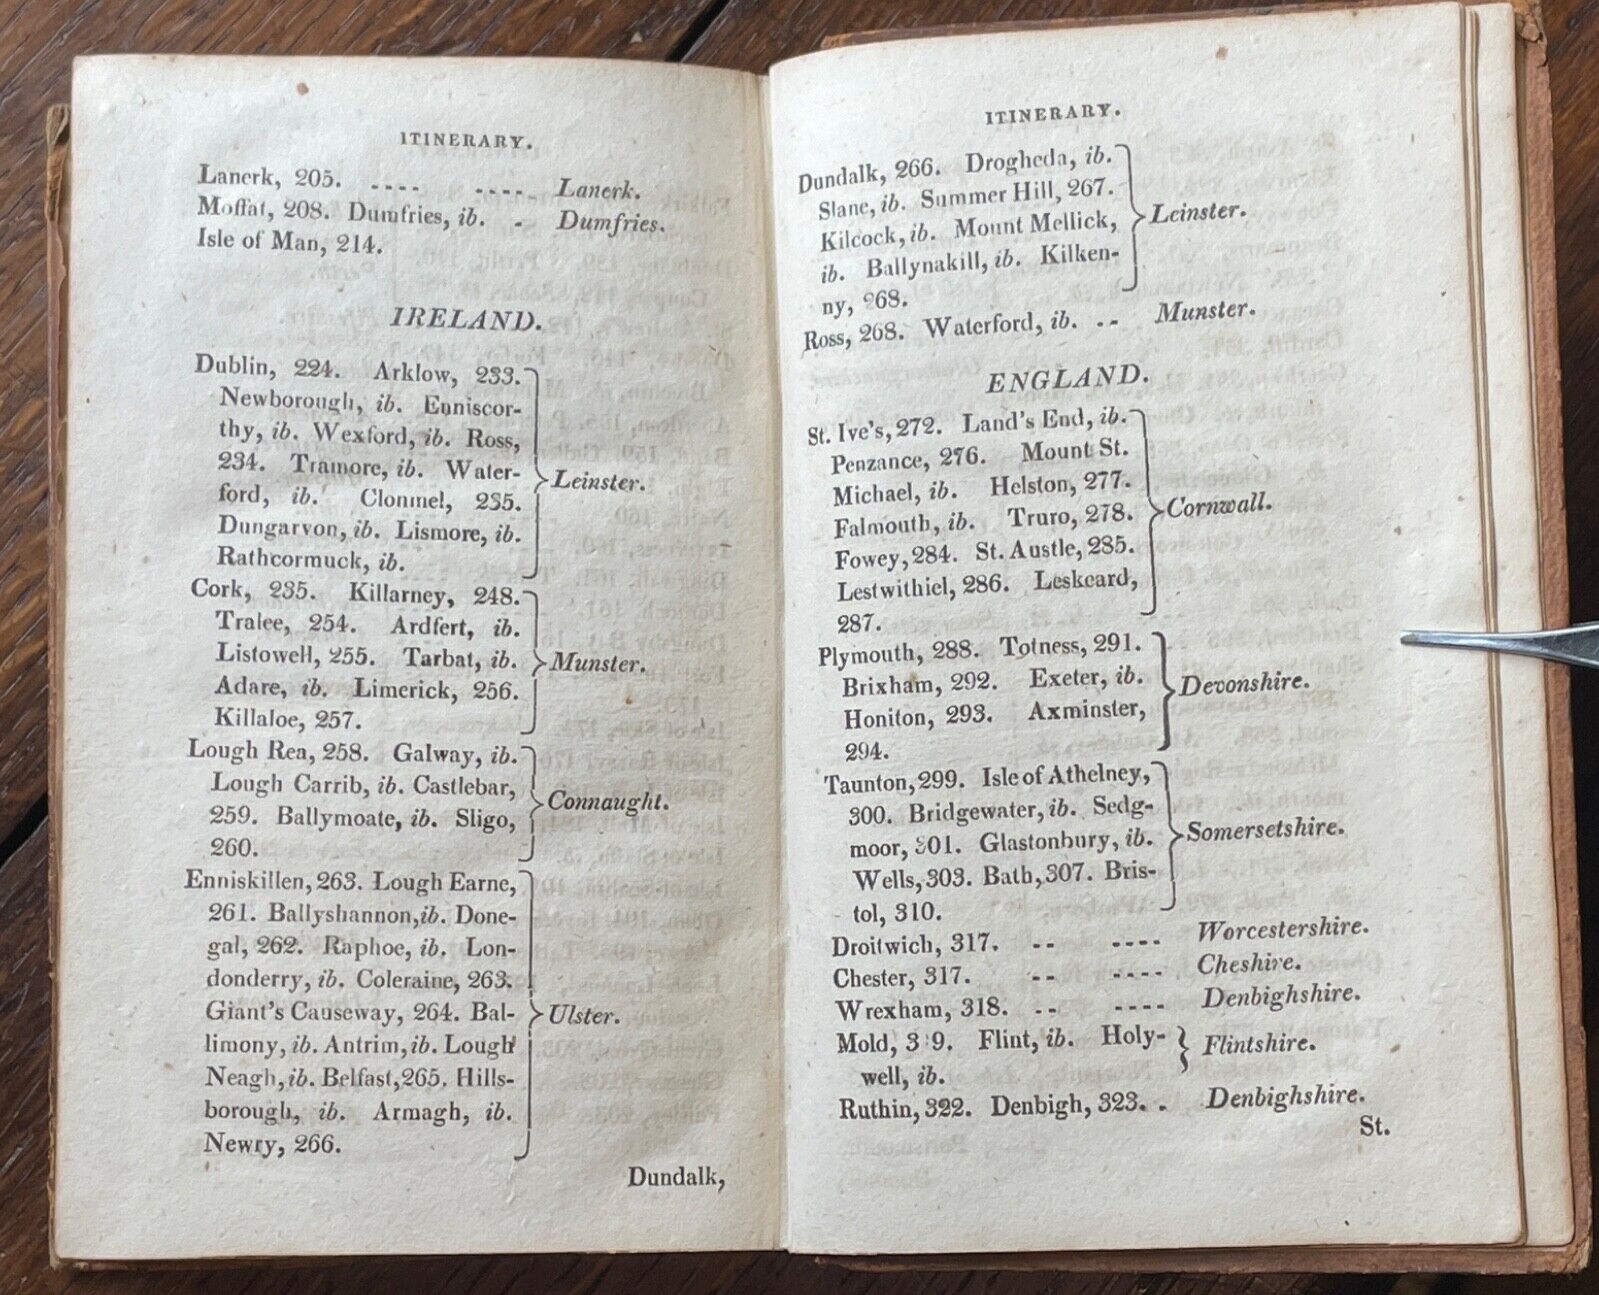 ITINERARY.
Lanerk, 205. ---- ---- Lanerk.
Moffat, 208. Dumfries, ib. - Dumfries.
Isle of Man, 214.
IRELAND.
Dublin, 224. Arklow, 233.
Newborough, ib. Enniscor-
thy, ib. Wexford, ib. Ross,
234. Tramore, ib. Water-
ford, ib. Clonmel, 235.
Dungarvon, ib. Lismore, ib.
Rathcormuck, ib.
Leinster.
Cork, 235. Killarney, 248.
Tralee, 254. Ardfert, ib.
Listowell, 255. Tarbat, ib.
Adare, ib. Limerick, 256.
Killaloe, 257.
Munster.
Lough Rea, 258. Galway, ib.
Lough Carrib, ib. Castlebar,
259. Ballymoate, ib. Sligo,
260.
Connaught.
Enniskillen, 263. Lough Earne,
261. Ballyshannon, ib. Done-
gal, 262. Raphoe, ib. Lon-
donderry, ib. Coleraine, 263.
Giant's Causeway, 264. Bal-
limony, ib. Antrim, ib. Lough
Neagh, ib. Belfast, 265. Hills-
borough, ib. Armagh, ib.
Newry, 266.
Ulster.
Dundalk,
ITINERARY.
Dundalk, 266. Drogheda, ib.
Slane, ib. Summer Hill, 267.
Kilcock, ib. Mount Mellick,
ib. Ballynakill, ib. Kilken-
ny, 268.
Leinster.
Ross, 268. Waterford, ib. -- Munster.
ENGLAND.
St. Ive's, 272. Land's End, ib.
Penzance, 276. Mount St.
Michael, ib. Helston, 277.
Falmouth, ib. Truro, 278.
Fowey, 284. St. Austle, 285.
Lestwithiel, 286. Leskeard,
287.
Cornwall.
Plymouth, 288. Totness, 291.
Brixham, 292. Exeter, ib.
Honiton, 293. Axminster,
294.
Devonshire.
Taunton, 299. Isle of Athelney,
300. Bridgewater, ib. Sedg-
moor, 301. Glastonbury, ib.
Wells, 303. Bath, 307. Bris-
tol, 310.
Somersetshire.
Droitwich, 317. -- ---- Worcestershire.
Chester, 317. -- ---- Cheshire.
Wrexham, 318. -- ---- Denbighshire.
Mold, 3 9. Flint, ib. Holy-
well, ib.
Flintshire.
Ruthin, 322. Denbigh, 323. . Denbighshire.
St.